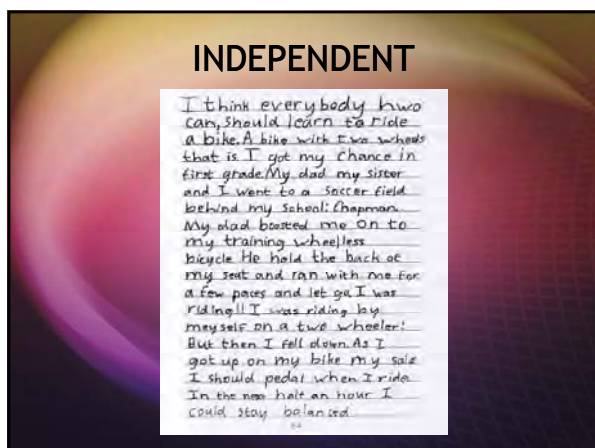 INDEPENDENT
I think everybody hwo
can, should learn to ride
a bike. A bike with two wheels
that is. I got my chance in
first grade. My dad my sister
and I went to a soccer field
behind my school: Chapman.
My dad boosted me on to
my training wheelless
bicycle He held the back of
my seat and ran with me for
a few paces and let go. I was
riding!! I was riding by
meyself on a two wheeler!
But then I fell down. As I
got up on my bike my
I should pedal when I ride
In the next half an hour I
could stay balanced